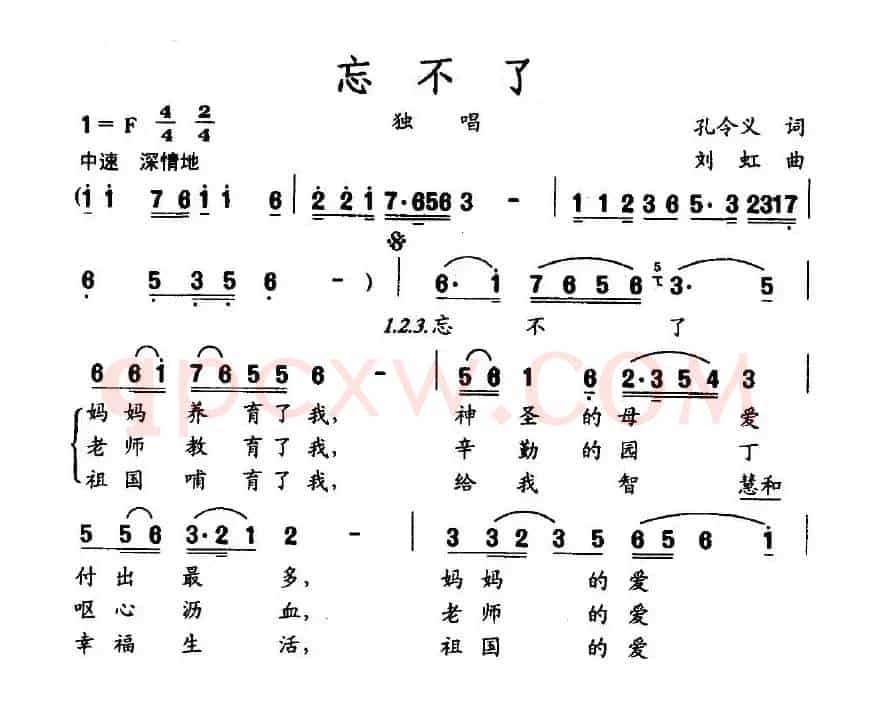 忘不了
1=F 4/4 2/4
独唱
孔令义 词
中速 深情地
刘虹 曲
(i i 7 6 i i 6 | 2 2 i 7·656 3 - | 1 1 2 3 6 5·3 2317 |
6 5 3 5 6 - ) | 6· i 7 6 5 6 5 3· 5
1.2.3.忘不了
6 6 i 7 6 5 5 6 - | 5 6 1 6 2·3 5 4 3
妈妈养育了我, 神圣的母爱
老师教育了我, 辛勤的园丁
祖国哺育了我, 给我智慧和
5 5 6 3·2 1 2 - | 3 3 2 3 5 6 5 6 i |
付出最多, 妈妈的爱
呕心沥血, 老师的爱
幸福生活, 祖国的爱
qpcxw.COM